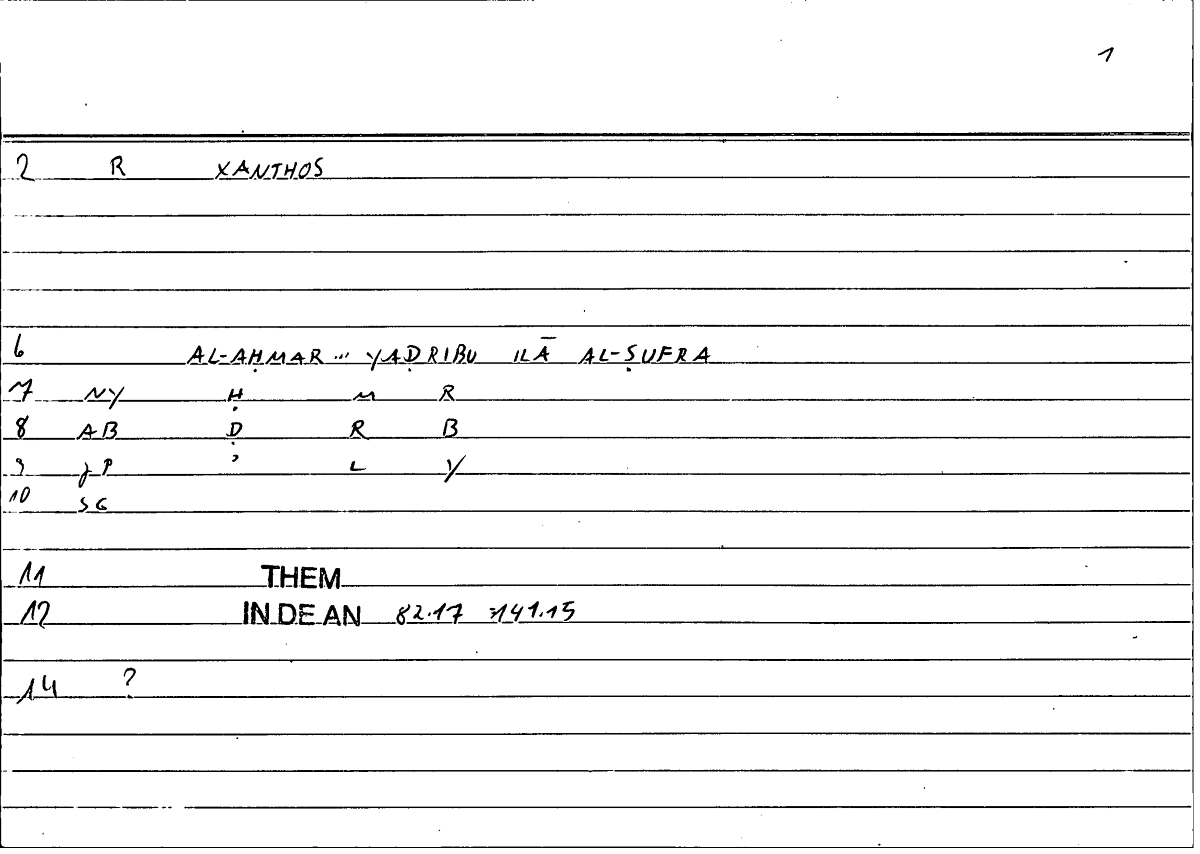 1
2 R XANTHOS
6 AL-AḤMAR ... YAḌRIBU ILĀ AL-ṢUFRA
7 NY Ḥ M R
8 AB Ḍ R B
9 gP ʾ L Y
10 SG
11 THEM
12 IN DE AN 82.17 =141.15
14 ?